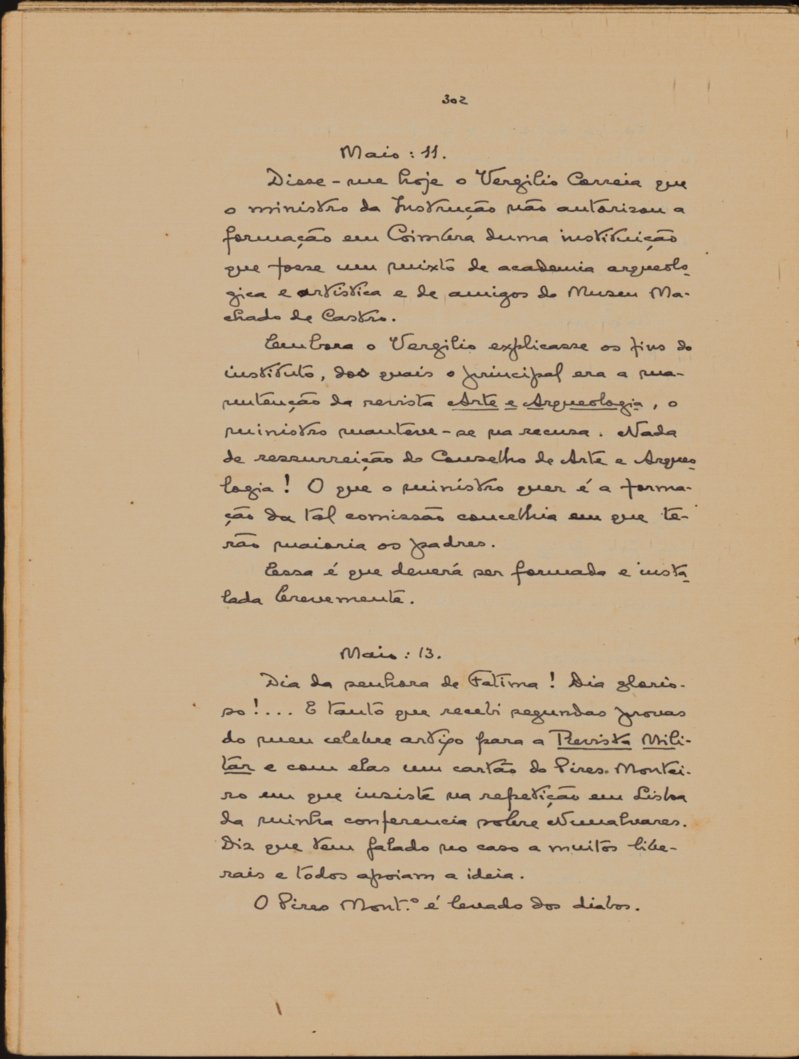 302
Maio: 11.
Disse-me hoje o Vergilio Correia que
o ministro da Instrução não autorizou a
formação em Coimbra duma instituição
que fosse um mixto de academia arqueolo-
gica e artistica e de amigos do Museu Ma-
chado de Castro.
Embora o Vergilio explicasse os fins do
instituto, dos quais o principal era a ma-
nutenção da revista Arte e Arqueologia, o
ministro manteve-se na recusa. Nada
de ressurreição do Conselho de Arte e Arqueo-
logia! O que o ministro quer é a forma-
ção da tal comissão concelhia em que te-
rão maioria os padres.
Essa é que deverá ser formada e insta-
lada brevemente.
Maio: 13.
Dia da senhora de Fatima! Dia glorio-
so!... E tanto que recebi segundas provas
do meu celebre artigo para a Revista Mili-
tar e com elas um cartão do Pires Montei-
ro em que insiste na repetição em Lisboa
da minha conferencia sobre Nunalvares.
Diz que tem falado no caso a muitos libe-
rais e todos apoiam a ideia.
O Pires Mont.º é levado dos diabos.